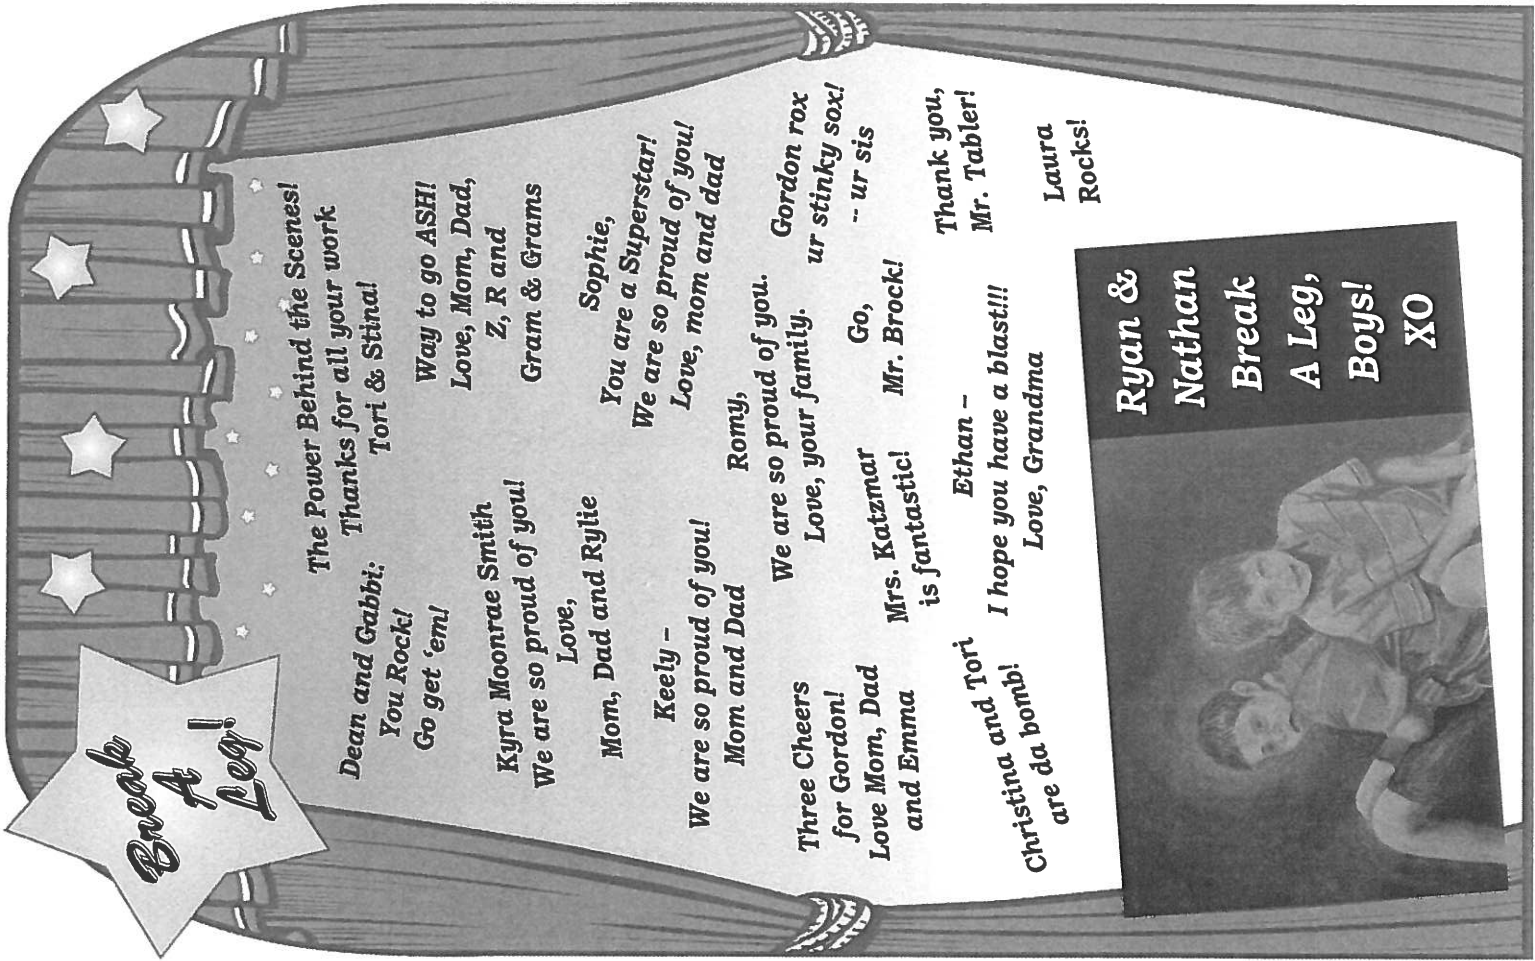 Break
A
Leg!
The Power Behind the Scenes!
Thanks for all your work
Tori & Stina!
Dean and Gabbi:
You Rock!
Go get ‘em!
Way to go ASH!
Love, Mom, Dad,
Z, R and
Gram & Grams
Kyra Moonrae Smith
We are so proud of you!
Love,
Mom, Dad and Rylie
Sophie,
You are a Superstar!
We are so proud of you!
Love, mom and dad
Keely –
We are so proud of you!
Mom and Dad
Romy,
We are so proud of you.
Love, your family.
Gordon rox
ur stinky sox!
-- ur sis
Three Cheers
for Gordon!
Love Mom, Dad
and Emma
Mrs. Katzmar
is fantastic!
Go,
Mr. Brock!
Thank you,
Mr. Tabler!
Christina and Tori
are da bomb!
Ethan –
I hope you have a blast!!!
Love, Grandma
Laura
Rocks!
Ryan &
Nathan
Break
A Leg,
Boys!
XO